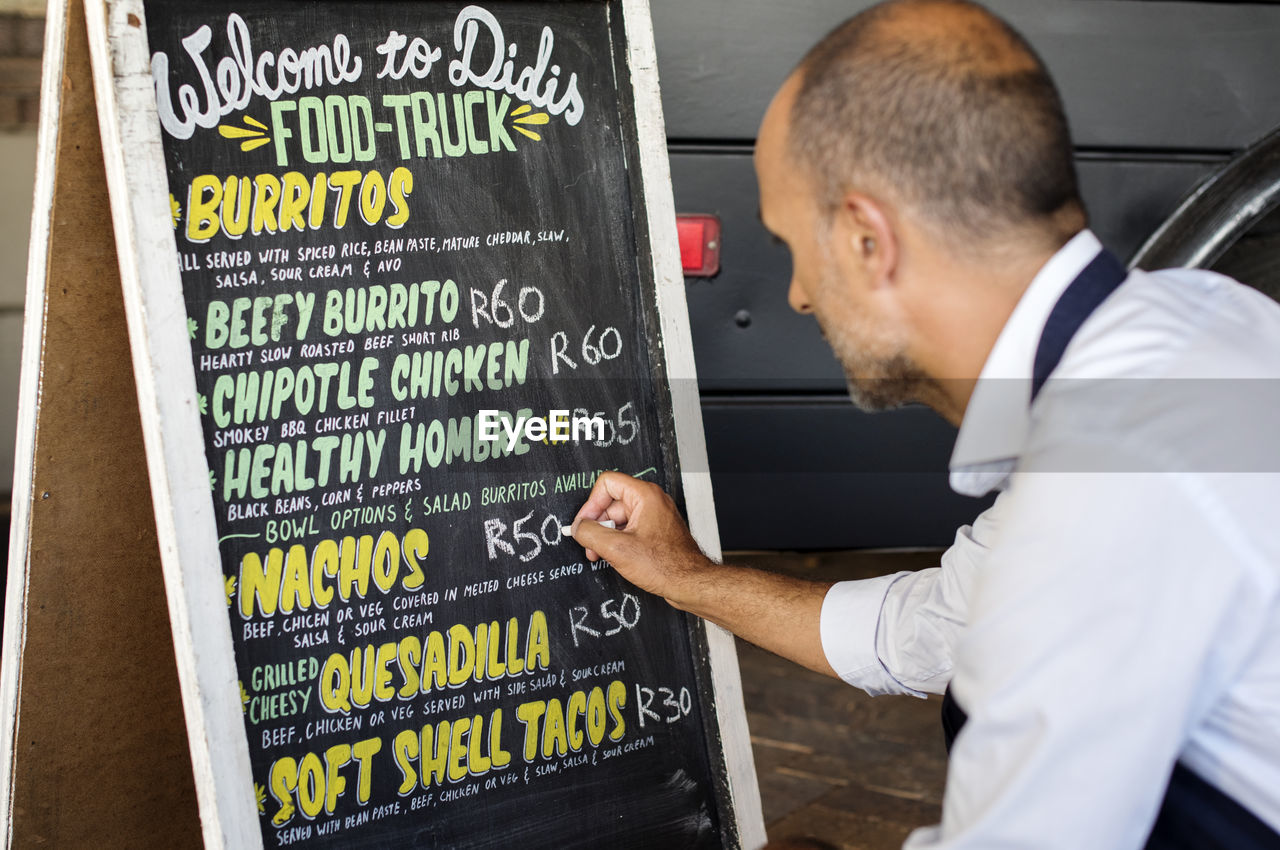 Welcome to Didis
FOOD-TRUCK
BURRITOS
ALL SERVED WITH SPICED RICE, BEAN PASTE, MATURE CHEDDAR, SLAW,
SALSA, SOUR CREAM & AVO
BEEFY BURRITO R60
HEARTY SLOW ROASTED BEEF SHORT RIB
CHIPOTLE CHICKEN R60
SMOKEY BBQ CHICKEN FILLET
HEALTHY HOMBRE R55
EyeEm
BLACK BEANS, CORN & PEPPERS
BOWL OPTIONS & SALAD BURRITOS
NACHOS R50
BEEF, CHICEN OR VEG COVERED IN MELTED CHEESE SERVED
SALSA & SOUR CREAM
GRILLED CHEESY QUESADILLA R50
BEEF, CHICKEN OR VEG SERVED WITH SIDE SALAD & SOUR CREAM
SOFT SHELL TACOS R30
SERVED WITH BEAN PASTE, BEEF, CHICKEN OR VEG & SLAW, SALSA & SOUR CREAM